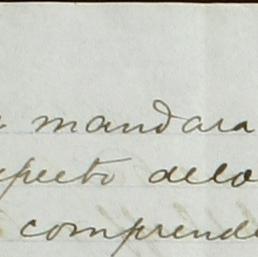 mandara
specto delo
comprende